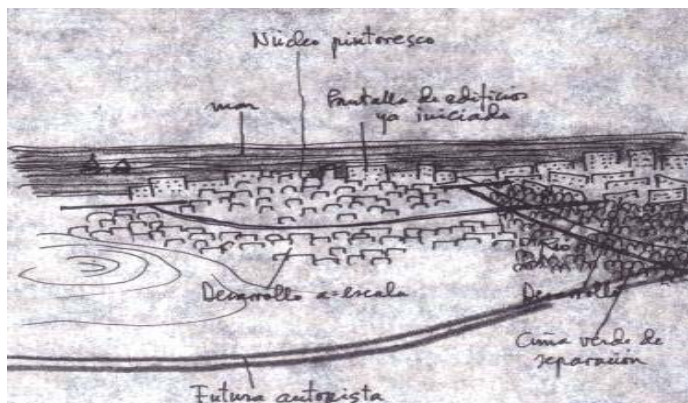 Núcleo pintoresco
mar
Pantalla de edificios
ya iniciada
Desarrollo a escala
Desarrollo
Cuña verde de
separación
Futura autopista